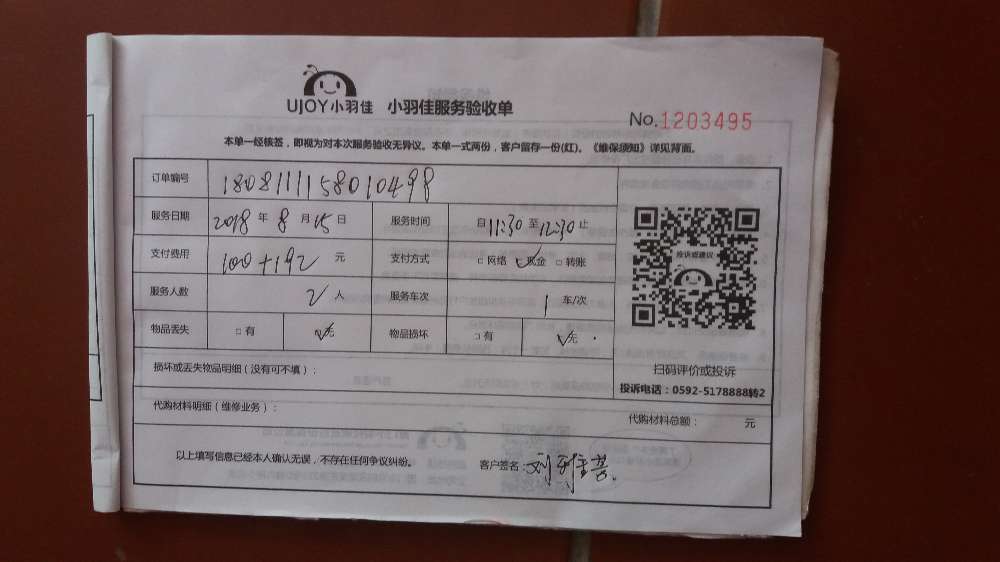 UJOY小羽佳 小羽佳服务验收单
No.1203495
本单一经核签，即视为对本次服务验收无异议。本单一式两份，客户留存一份(红)。《维保须知》详见背面。
订单编号 1808111158010498
服务日期 2018 年 8 月 15 日 服务时间 自 11:30 至 12:30 止
支付费用 100+192 元 支付方式 □网络 ☑现金 □转账
服务人数 2 人 服务车次 1 车/次
物品丢失 □有 ☑无 物品损坏 □有 ☑无
投诉或建议
扫码评价或投诉
投诉电话：0592-5178888转2
损坏或丢失物品明细（没有可不填）：
代购材料明细（维修业务）： 代购材料总额： 元
以上填写信息已经本人确认无误，不存在任何争议纠纷。 客户签名：刘